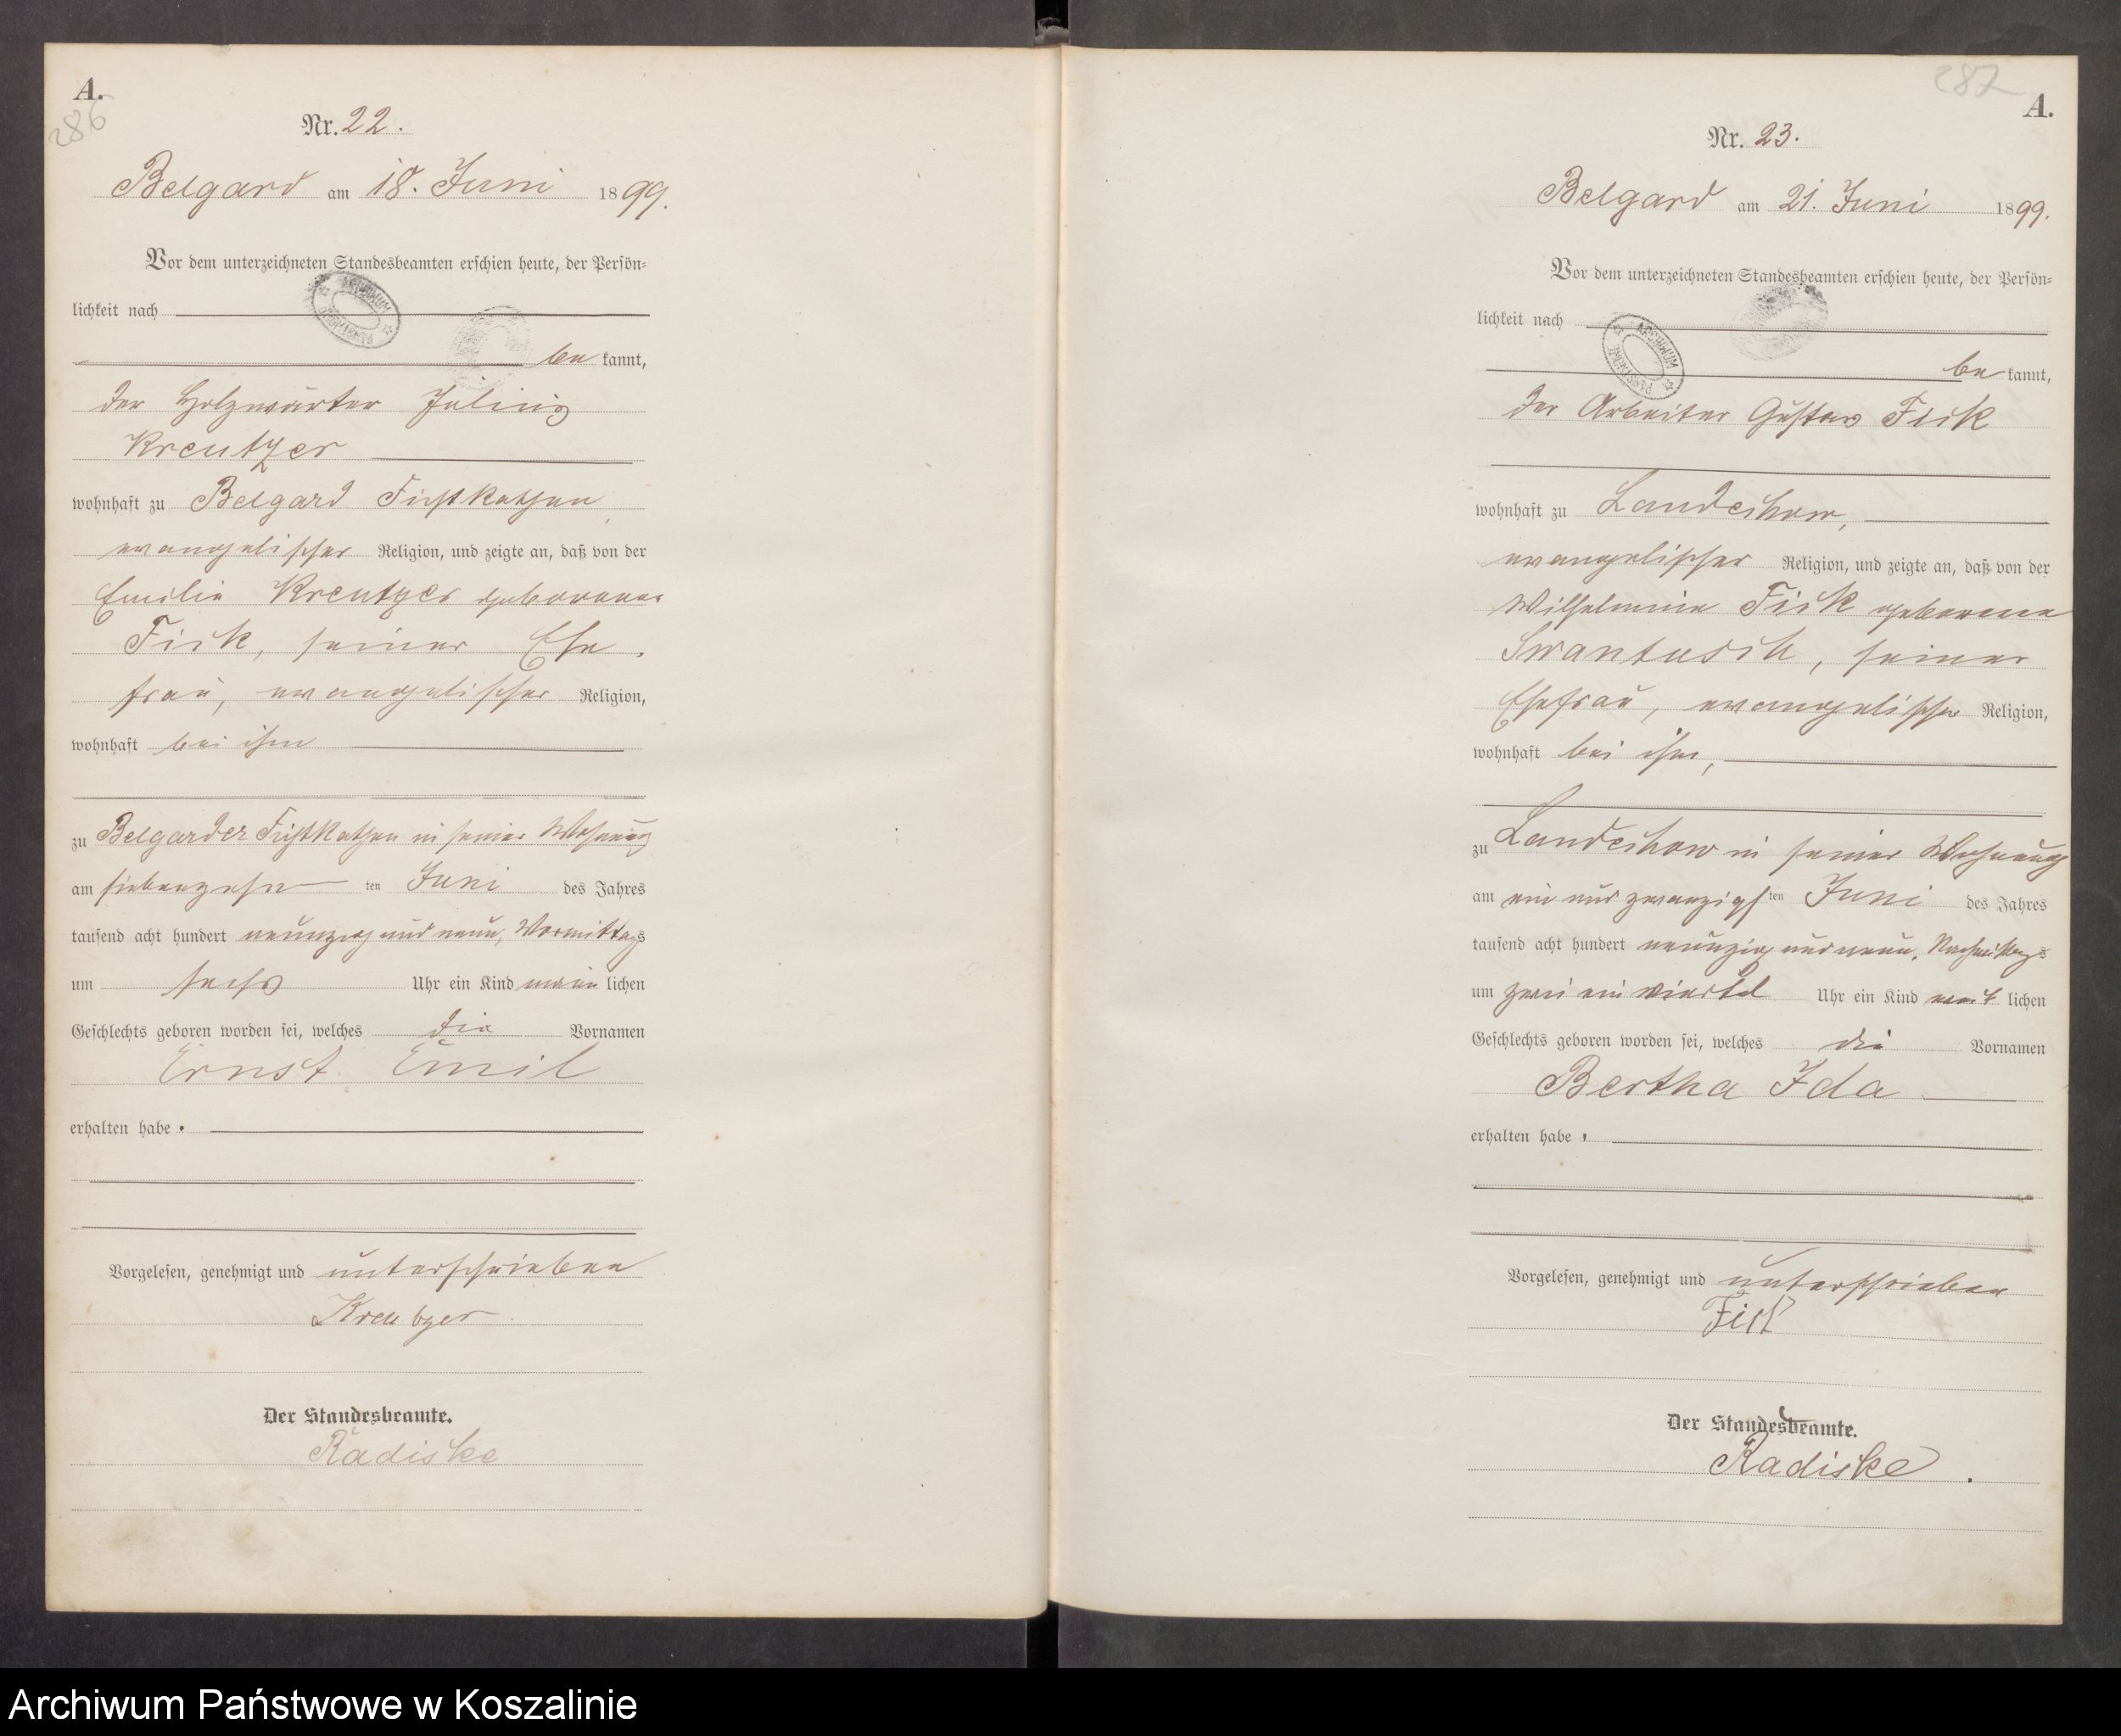 A.
286
Nr. 22.
Belgard am 18. Juni 1899.
Vor dem unterzeichneten Standesbeamten erschien heute, der Persön-
lichkeit nach
be kannt,
der Holzwärter Julius
Kreutzer
wohnhaft zu Belgard Fichtkathen
evangelischer Religion, und zeigte an, daß von der
Emilie Kreutzer geborenen
Fick, seiner Ehe-
frau, evangelischer Religion,
wohnhaft bei ihm
zu Belgarder Fichtkathen in seiner Wohnung
am siebenzehn ten Juni des Jahres
tausend acht hundert neunzig und neun, Vormittags
um sechs Uhr ein Kind männ lichen
Geschlechts geboren worden sei, welches die Vornamen
Ernst Emil
erhalten habe.
Vorgelesen, genehmigt und unterschrieben
Kreutzer
Der Standesbeamte.
Radiske
287
A.
Nr. 23.
Belgard am 21. Juni 1899.
Vor dem unterzeichneten Standesbeamten erschien heute, der Persön-
lichkeit nach
be kannt,
der Arbeiter Gustav Fick
wohnhaft zu Landechow,
evangelischer Religion, und zeigte an, daß von der
Wilhelmine Fick geborene
Swantusch, seiner
Ehefrau, evangelischer Religion,
wohnhaft bei ihm,
zu Landechow in seiner Wohnung
am ein und zwanzigs ten Juni des Jahres
tausend acht hundert neunzig und neun, Nachmittags
um zwei ein viertel Uhr ein Kind weib lichen
Geschlechts geboren worden sei, welches die Vornamen
Bertha Ida
erhalten habe.
Vorgelesen, genehmigt und unterschrieben
Fick
Der Standesbeamte.
Radiske.
Archiwum Państwowe w Koszalinie